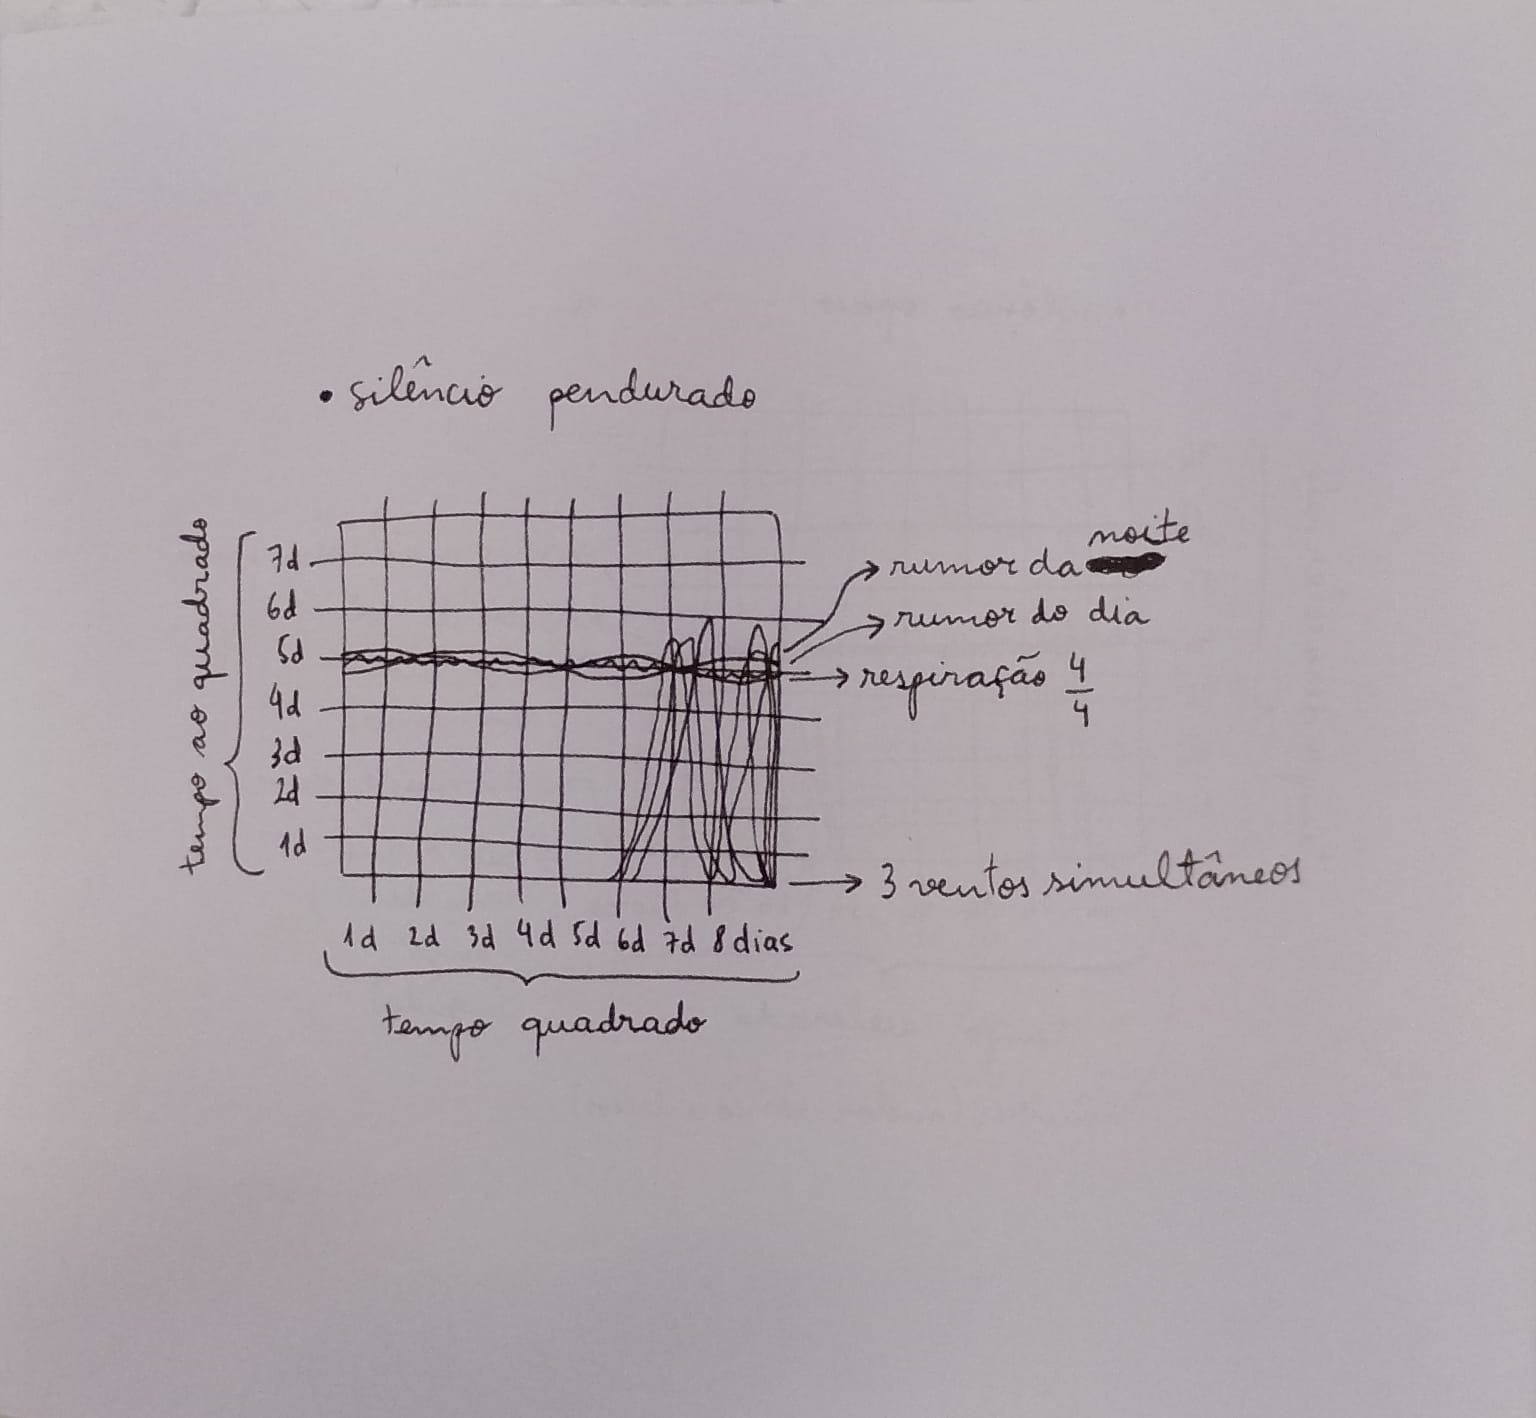 • silêncio pendurado
tempo ao quadrado
7d
6d
5d
4d
3d
2d
1d
noite
rumor da
rumor do dia
respiração 4/4
3 ventos simultâneos
1d 2d 3d 4d 5d 6d 7d 8 dias
tempo quadrado